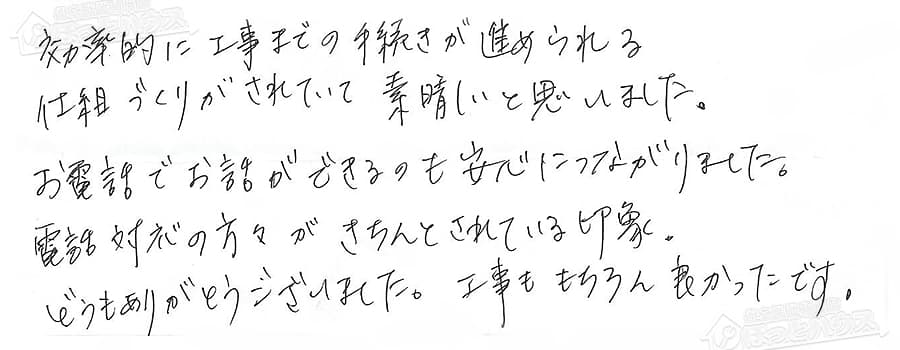 効率的に工事までの手続きが進められる
仕組づくりがされていて素晴しいと思いました。
お電話でお話ができるのも安心につながりました。
電話対応の方々がきちんとされている印象。
どうもありがとうございました。工事ももちろん良かったです。